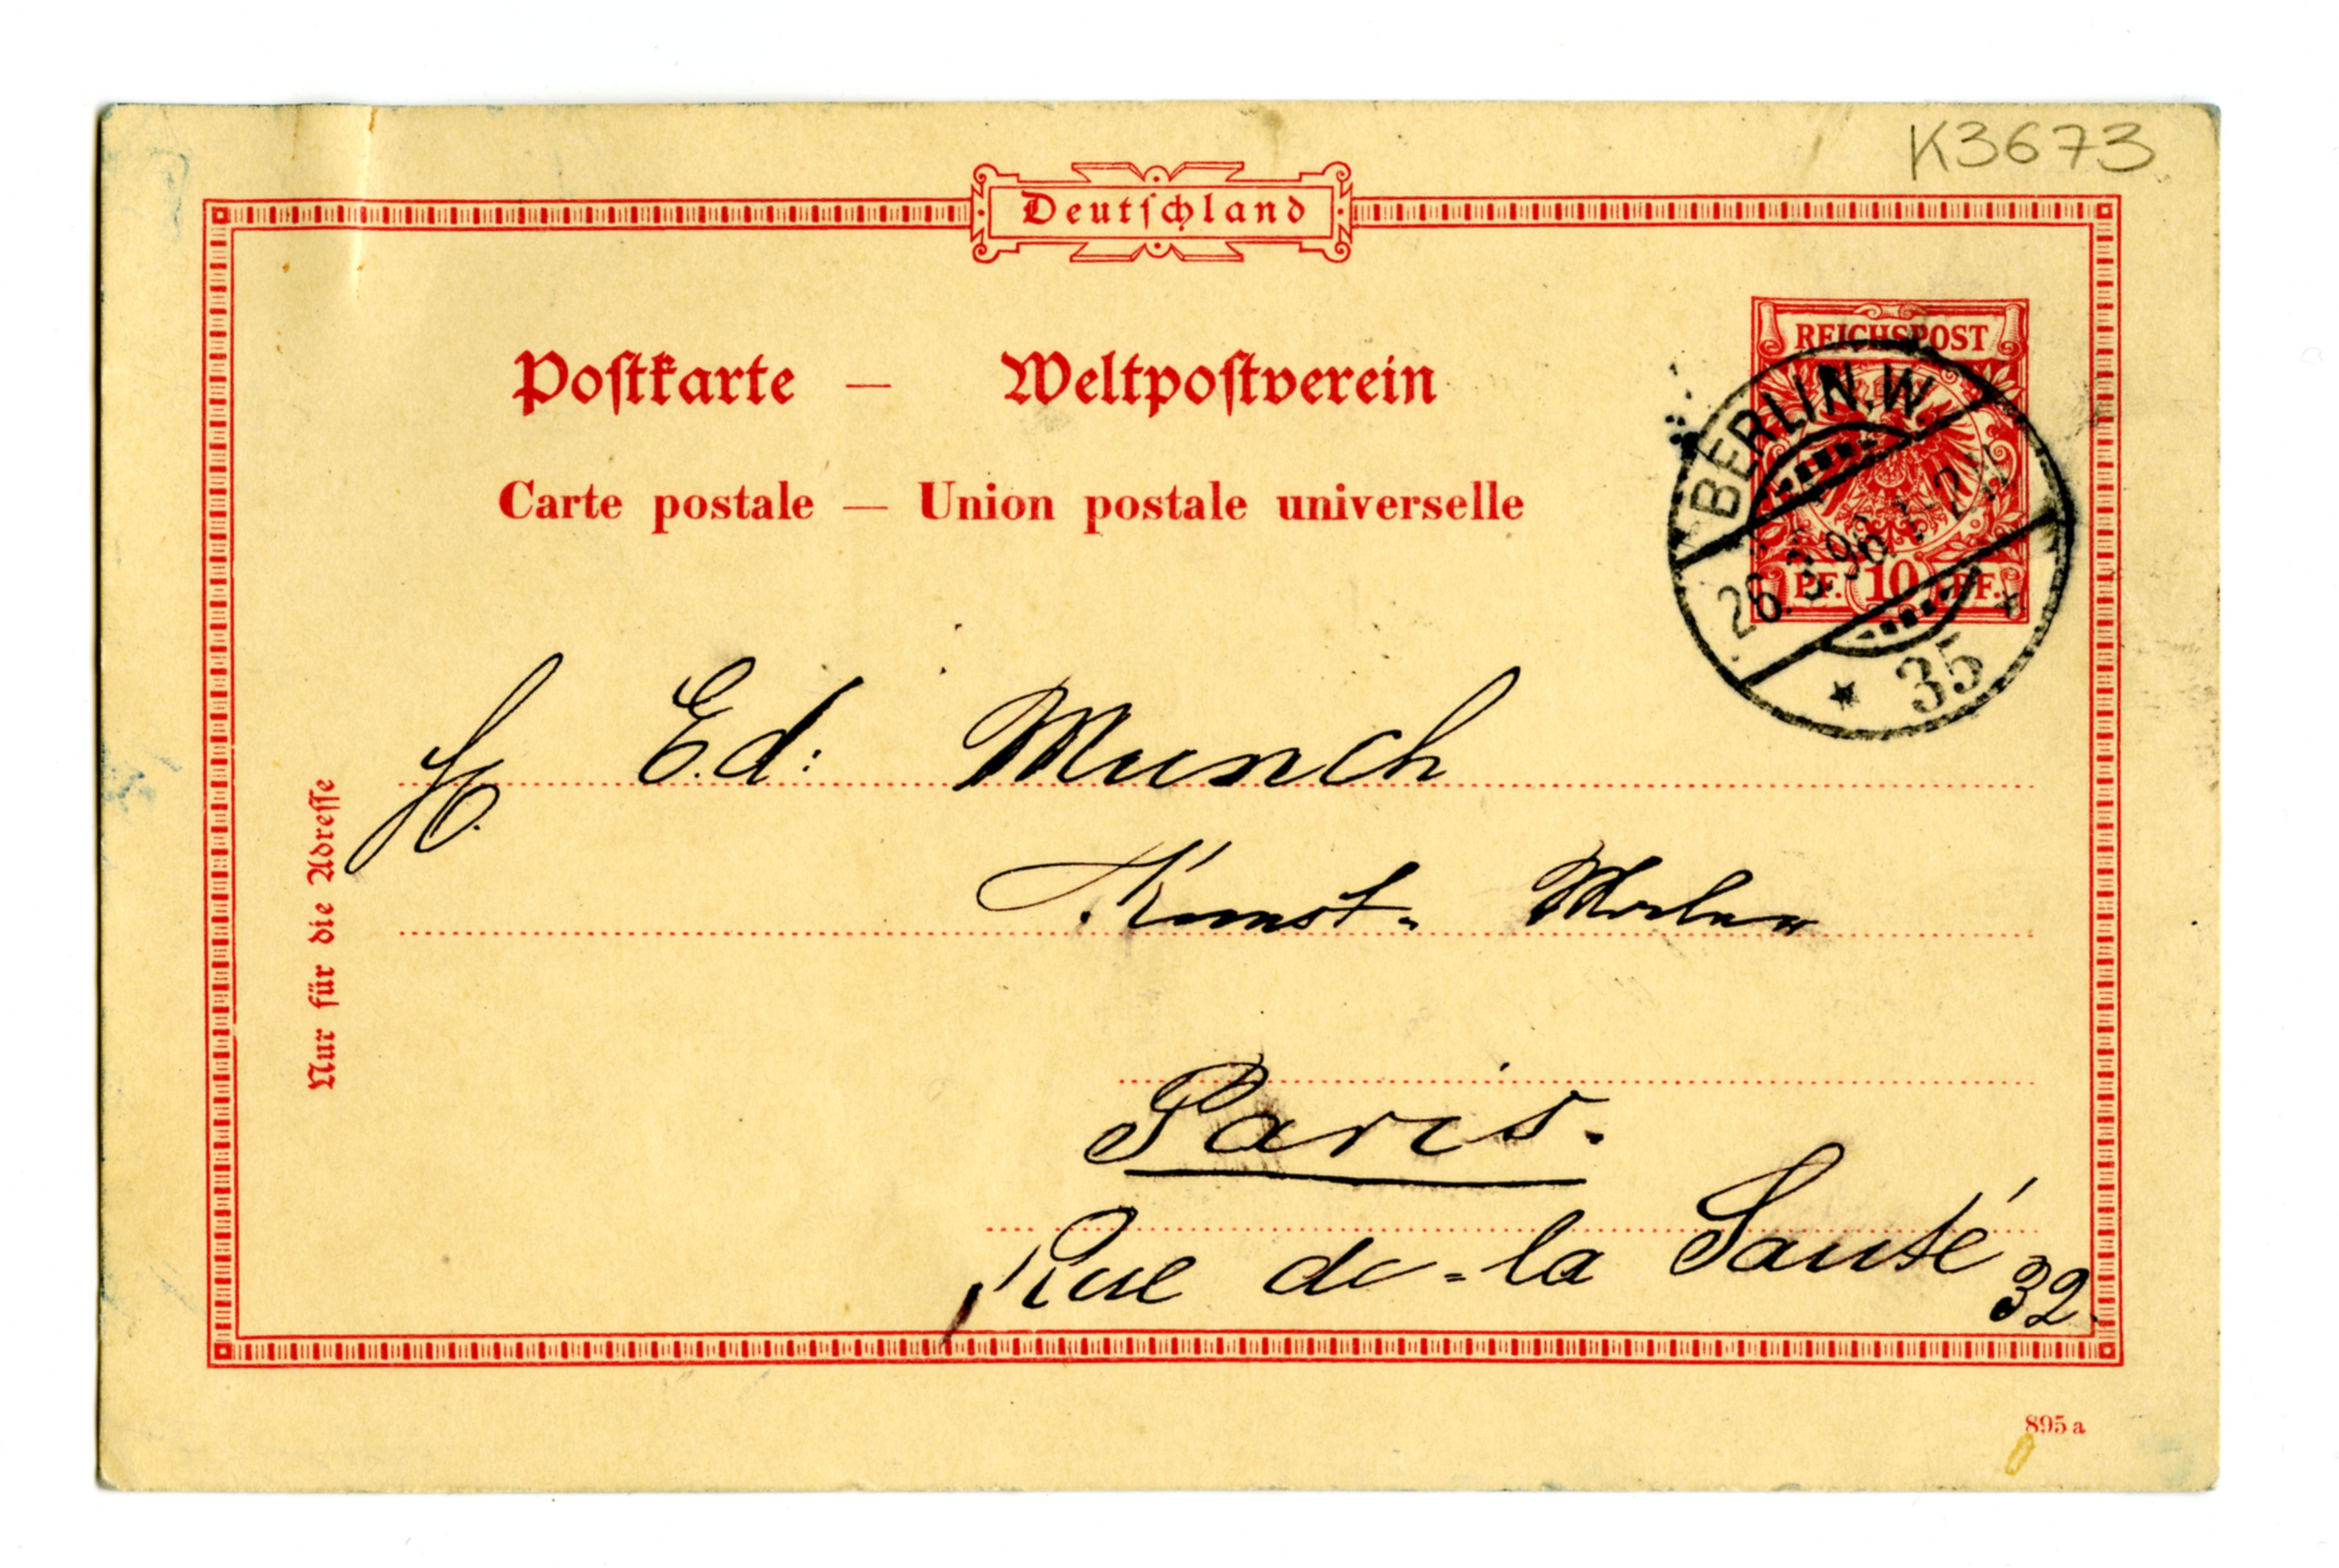 K3673
Deutſchland
Poſtkarte — Weltpoſtverein
Carte postale — Union postale universelle
REICHSPOST
PF. 10 PF.
BERLIN.W
26.3.96.1-2N
* 35 *
H. Ed: Munch
Kunst-
Paris.
Rue de-la Santé 32.
Nur für die Adreſſe
895 a